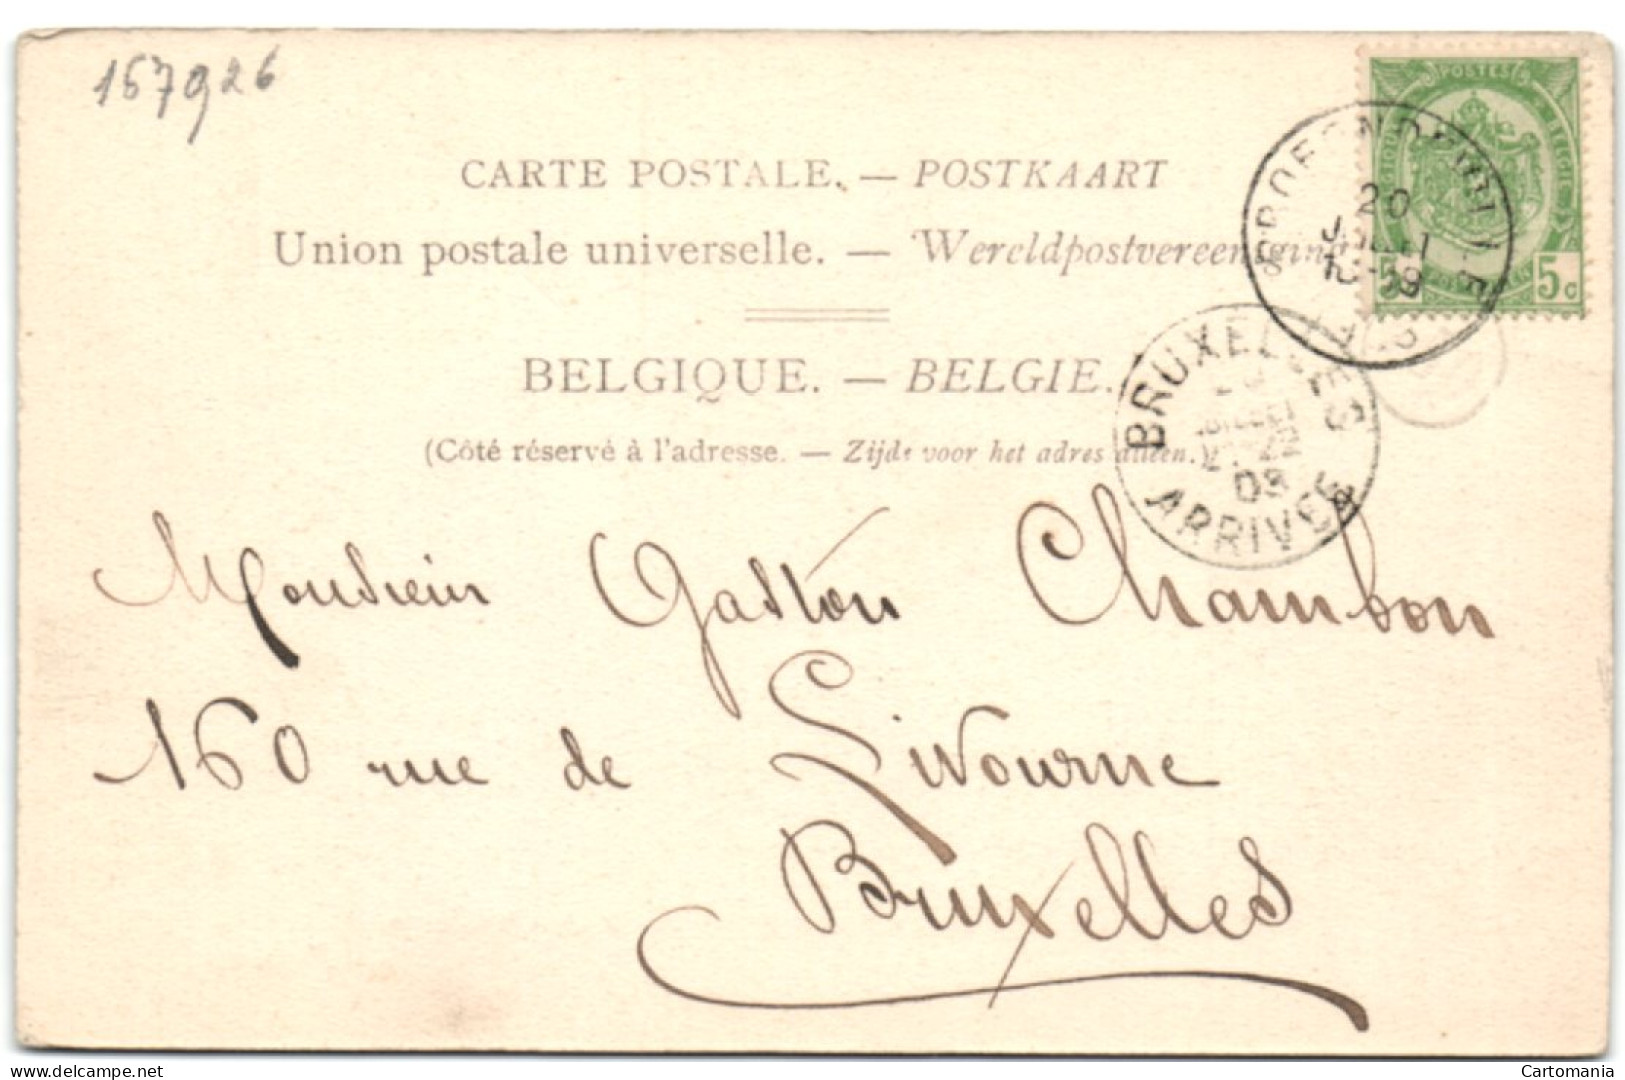 157926
POSTES
BELGIQUE BELGIE
5 5c
CARTE POSTALE. — POSTKAART
20
JUIL
Union postale universelle. — Wereldpostvereeniging
BELGIQUE. — BELGIE.
BRUXELLES
JUILLET
03
ARRIVEE
(Côté réservé à l'adresse. — Zijde voor het adres alleen.)
Monsieur Gaston Chambon
160 rue de Livourne
Bruxelles
delcampe.net
Cartomania